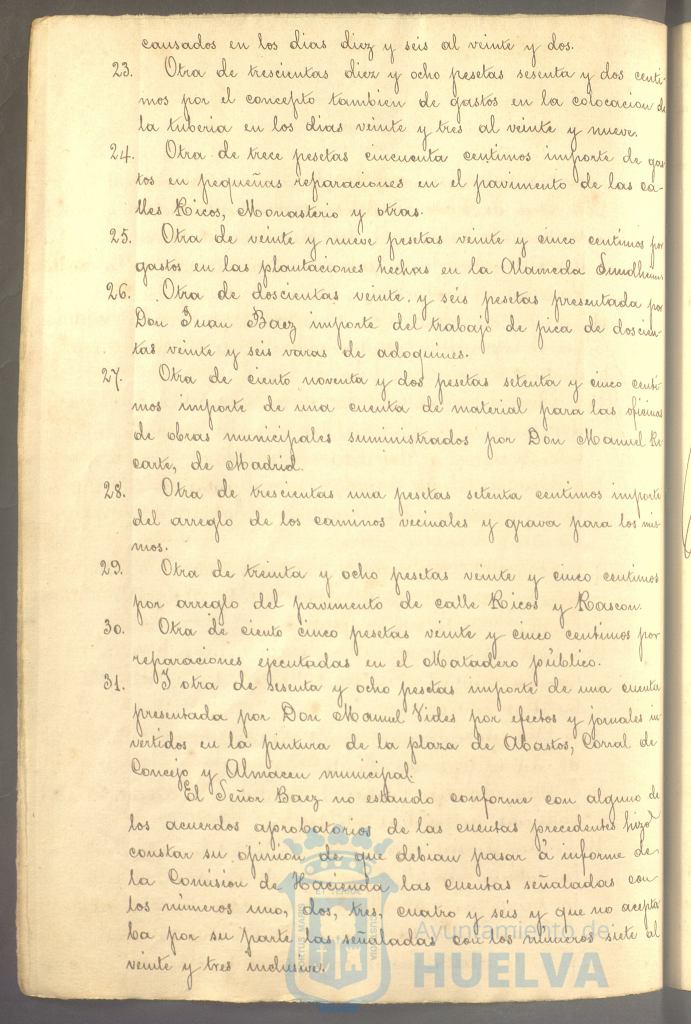 causados en los dias diez y seis al veinte y dos.
23. Otra de trescientas diez y ocho pesetas sesenta y dos centi-
mos por el concepto tambien de gastos en la colocacion de
la tuberia en los dias veinte y tres al veinte y nueve.
24. Otra de trece pesetas cincuenta centimos importe de gas-
tos en pequeñas reparaciones en el pavimento de las ca-
lles Ricos, Monasterio y otras.
25. Otra de veinte y nueve pesetas veinte y cinco centimos por
gastos en las plantaciones hechas en la Alameda Sundheim.
26. Otra de doscientas veinte y seis pesetas presentada por
Don Juan Baez importe del trabajo de pica de doscien-
tas veinte y seis varas de adoquines.
27. Otra de ciento noventa y dos pesetas setenta y cinco centi-
mos importe de una cuenta de material para las oficinas
de obras municipales suministrados por Don Manuel Ri-
carte, de Madrid.
28. Otra de trescientas una pesetas setenta centimos importe
del arreglo de los caminos vecinales y grava para los mis-
mos.
29. Otra de treinta y ocho pesetas veinte y cinco centimos
por arreglo del pavimento de calle Ricos y Rascon.
30. Otra de ciento cinco pesetas veinte y cinco centimos por
reparaciones ejecutadas en el Matadero público.
31. Y otra de sesenta y ocho pesetas importe de una cuenta
presentada por Don Manuel Vides por efectos y jornales in-
vertidos en la pintura de la plaza de Abastos, Corral de
Concejo y Almacen municipal.
El Señor Baez no estando conforme con alguno de
los acuerdos aprobatorios de las cuentas precedentes hizo
constar su opinion de que debian pasar á informe de
la Comision de Hacienda las cuentas señaladas con
los números uno, dos, tres, cuatro y seis y que no acepta-
ba por su parte las señaladas con los números siete al
veinte y tres inclusive.
Ayuntamiento de
HUELVA